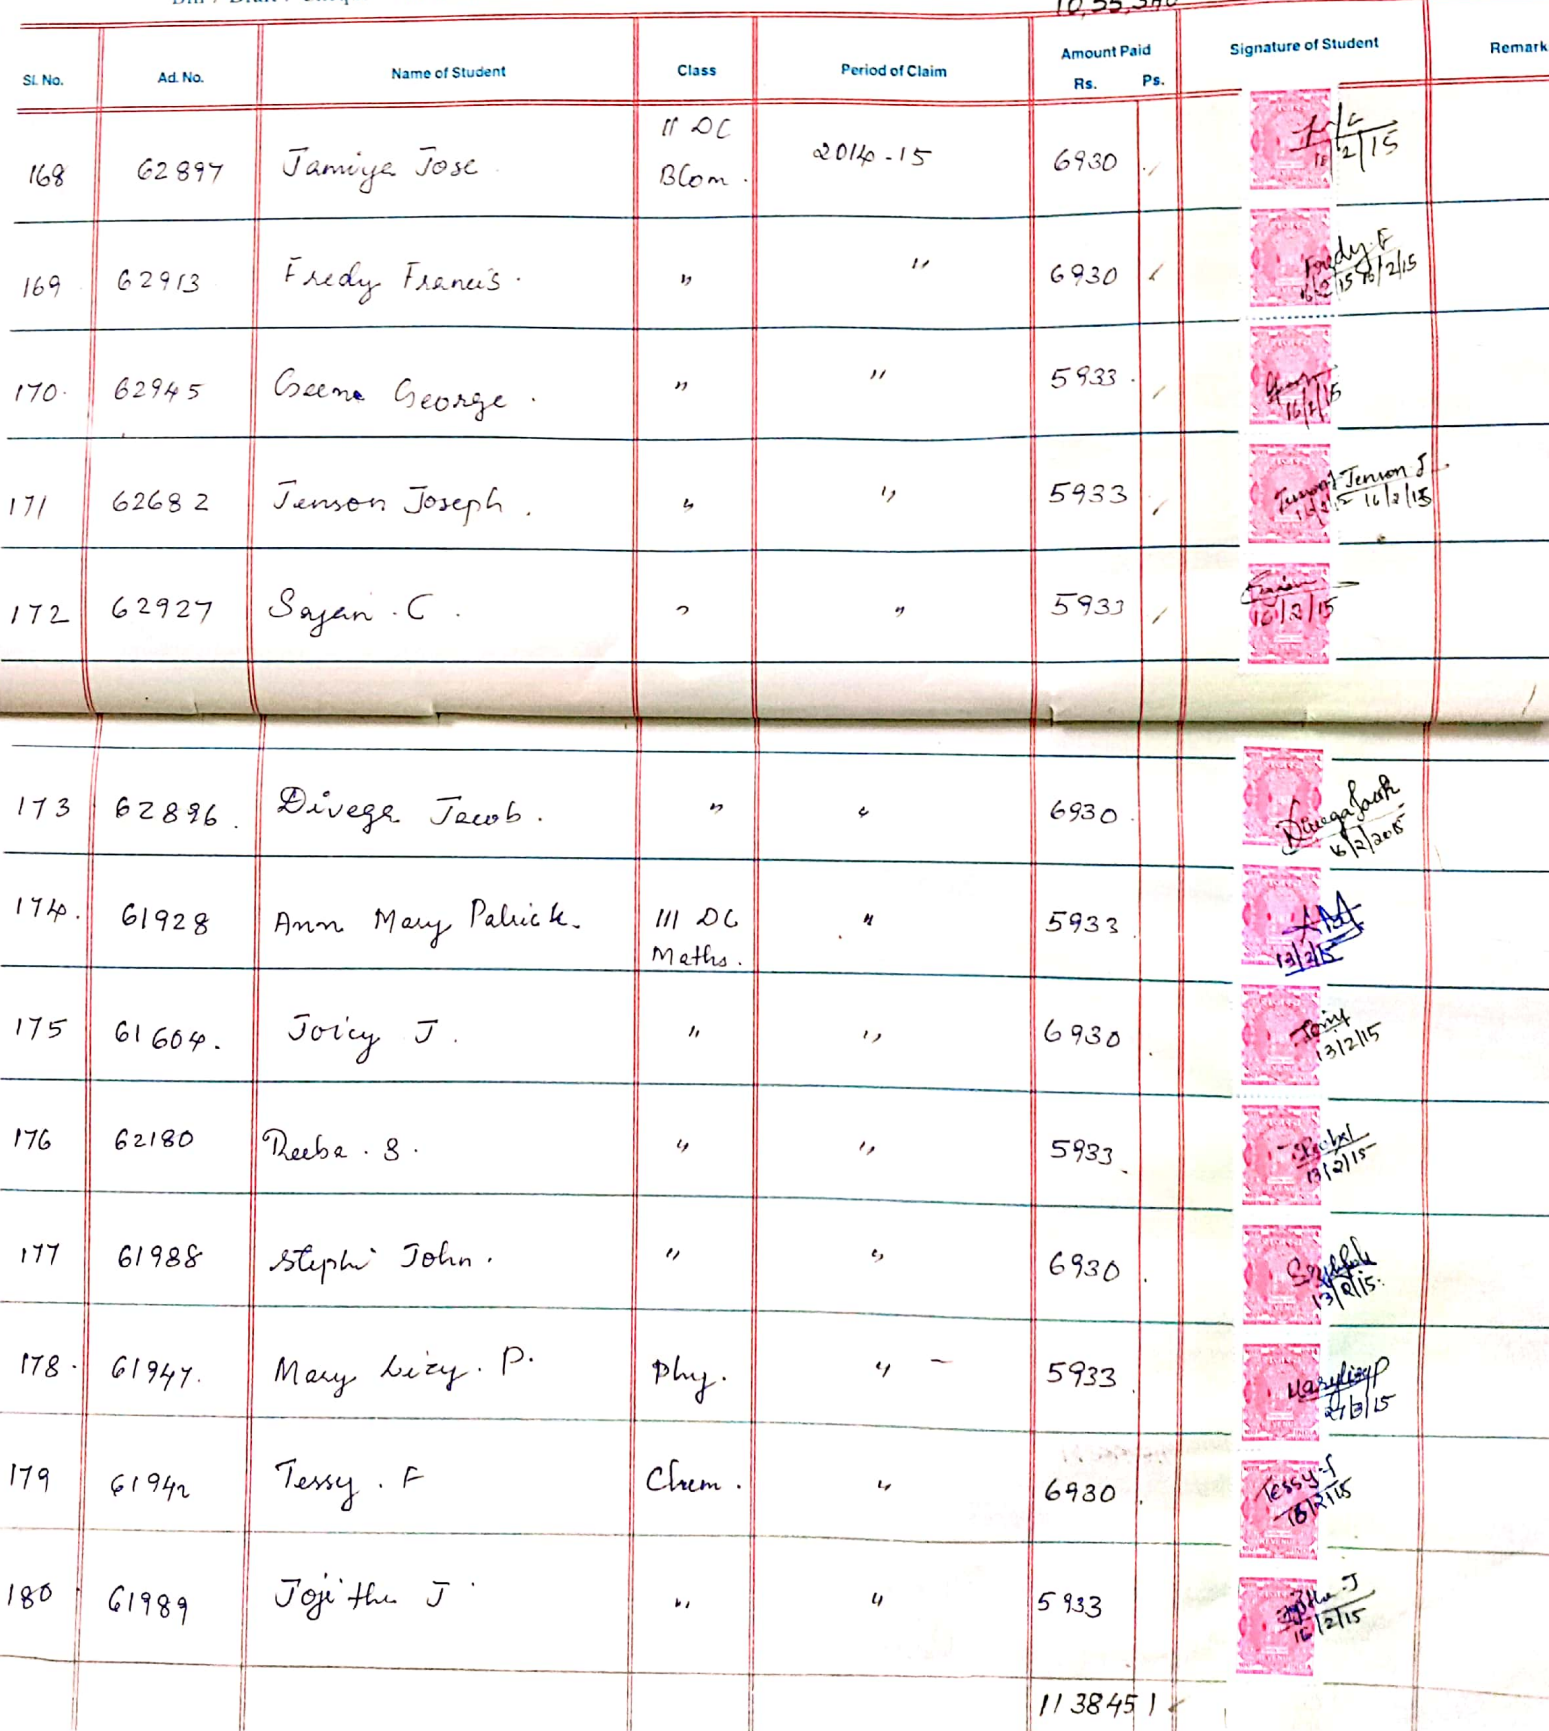 10,55,340
Sl. No. Ad. No. Name of Student Class Period of Claim Amount Paid Rs. Ps. Signature of Student Remark
168 62897 Jamiya Jose II DC BCom. 2014-15 6930
16/2/15
169 62913 Fredy Francis. " " 6930 Fredy F
16/2/15 16/2/15
170. 62945 Geena George. " " 5933.
16/2/15
171 62682 Jenson Joseph. " " 5933 Jenson J Jenson J
16/2/15 16/2/15
172 62927 Sajan. C. " " 5933
16/2/15
173 62896. Divega Jacob. " " 6930. Divega Jacob
16/2/2015
174. 61928 Ann Mary Patrick. III DC Maths. " 5933.
13/2/15
175 61604. Joicy J. " " 6930. Joicy
13/2/15
176 62180 Reeba. S. " " 5933.
13/2/15
177 61988 Stephi John. " " 6930.
13/2/15.
178. 61947. Mary Lizy. P. Phy. " – 5933. Marylizy P
27/3/15
179 61942 Tessy. F Chem. " 6930. Tessy.f
18/2/15
180 61989 Jojitha J " " 5933 Jojitha J
16/2/15
1138451